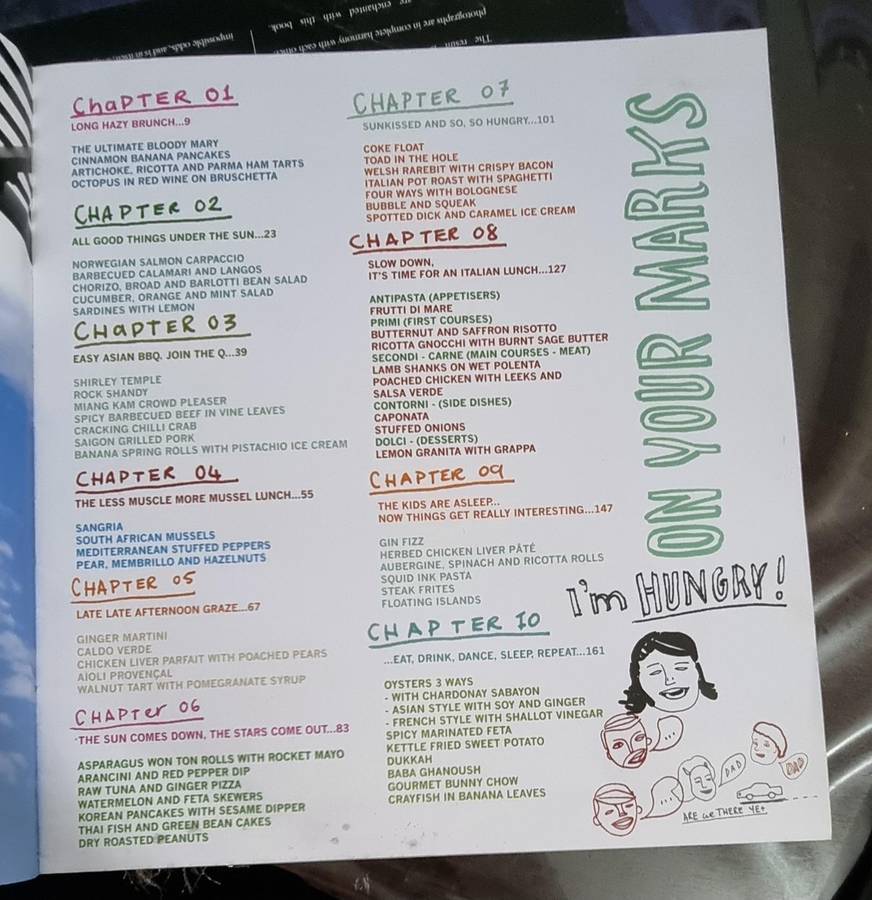 The resu
photographs are in complete harmony with each other
are enchanted with this book.
impossible odds, and is in
CHAPTER 01
LONG HAZY BRUNCH...9
THE ULTIMATE BLOODY MARY
CINNAMON BANANA PANCAKES
ARTICHOKE, RICOTTA AND PARMA HAM TARTS
OCTOPUS IN RED WINE ON BRUSCHETTA
CHAPTER 02
ALL GOOD THINGS UNDER THE SUN...23
NORWEGIAN SALMON CARPACCIO
BARBECUED CALAMARI AND LANGOS
CHORIZO, BROAD AND BARLOTTI BEAN SALAD
CUCUMBER, ORANGE AND MINT SALAD
SARDINES WITH LEMON
CHAPTER 03
EASY ASIAN BBQ. JOIN THE Q...39
SHIRLEY TEMPLE
ROCK SHANDY
MIANG KAM CROWD PLEASER
SPICY BARBECUED BEEF IN VINE LEAVES
CRACKING CHILLI CRAB
SAIGON GRILLED PORK
BANANA SPRING ROLLS WITH PISTACHIO ICE CREAM
CHAPTER 04
THE LESS MUSCLE MORE MUSSEL LUNCH...55
SANGRIA
SOUTH AFRICAN MUSSELS
MEDITERRANEAN STUFFED PEPPERS
PEAR, MEMBRILLO AND HAZELNUTS
CHAPTER 05
LATE LATE AFTERNOON GRAZE...67
GINGER MARTINI
CALDO VERDE
CHICKEN LIVER PARFAIT WITH POACHED PEARS
AÏOLI PROVENÇAL
WALNUT TART WITH POMEGRANATE SYRUP
CHAPTER 06
THE SUN COMES DOWN, THE STARS COME OUT...83
ASPARAGUS WON TON ROLLS WITH ROCKET MAYO
ARANCINI AND RED PEPPER DIP
RAW TUNA AND GINGER PIZZA
WATERMELON AND FETA SKEWERS
KOREAN PANCAKES WITH SESAME DIPPER
THAI FISH AND GREEN BEAN CAKES
DRY ROASTED PEANUTS
CHAPTER 07
SUNKISSED AND SO, SO HUNGRY...101
COKE FLOAT
TOAD IN THE HOLE
WELSH RAREBIT WITH CRISPY BACON
ITALIAN POT ROAST WITH SPAGHETTI
FOUR WAYS WITH BOLOGNESE
BUBBLE AND SQUEAK
SPOTTED DICK AND CARAMEL ICE CREAM
CHAPTER 08
SLOW DOWN,
IT'S TIME FOR AN ITALIAN LUNCH...127
ANTIPASTA (APPETISERS)
FRUTTI DI MARE
PRIMI (FIRST COURSES)
BUTTERNUT AND SAFFRON RISOTTO
RICOTTA GNOCCHI WITH BURNT SAGE BUTTER
SECONDI - CARNE (MAIN COURSES - MEAT)
LAMB SHANKS ON WET POLENTA
POACHED CHICKEN WITH LEEKS AND
SALSA VERDE
CONTORNI - (SIDE DISHES)
CAPONATA
STUFFED ONIONS
DOLCI - (DESSERTS)
LEMON GRANITA WITH GRAPPA
CHAPTER 09
THE KIDS ARE ASLEEP...
NOW THINGS GET REALLY INTERESTING...147
GIN FIZZ
HERBED CHICKEN LIVER PÂTÉ
AUBERGINE, SPINACH AND RICOTTA ROLLS
SQUID INK PASTA
STEAK FRITES
FLOATING ISLANDS
CHAPTER 10
...EAT, DRINK, DANCE, SLEEP, REPEAT...161
OYSTERS 3 WAYS
- WITH CHARDONAY SABAYON
- ASIAN STYLE WITH SOY AND GINGER
- FRENCH STYLE WITH SHALLOT VINEGAR
SPICY MARINATED FETA
KETTLE FRIED SWEET POTATO
DUKKAH
BABA GHANOUSH
GOURMET BUNNY CHOW
CRAYFISH IN BANANA LEAVES
ON YOUR MARKS
I'm HUNGRY!
...
...
DAD
DAD
ARE we THERE YEt